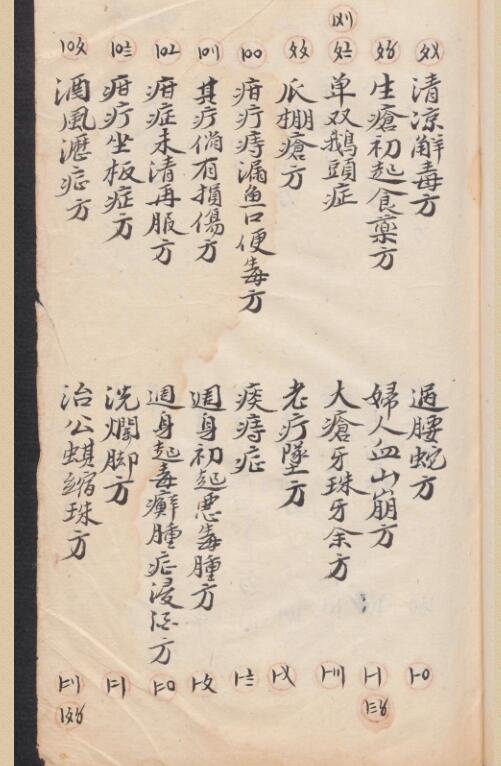 清凉解毒方
生瘡初起食藥方
单双鵝頭症
爪棚瘡方
疳疔痔漏魚口便毒方
其疔倘有損傷方
疳症未清再服方
疳疔坐板症方
酒風瀝症方
過腰蛇方
婦人血山崩方
大瘡牙珠牙余方
老疔墜方
痰痔症
週身初起悪毒腫方
週身起毒癬腫症浸酒方
洗爛脚方
治公蜞縮珠方